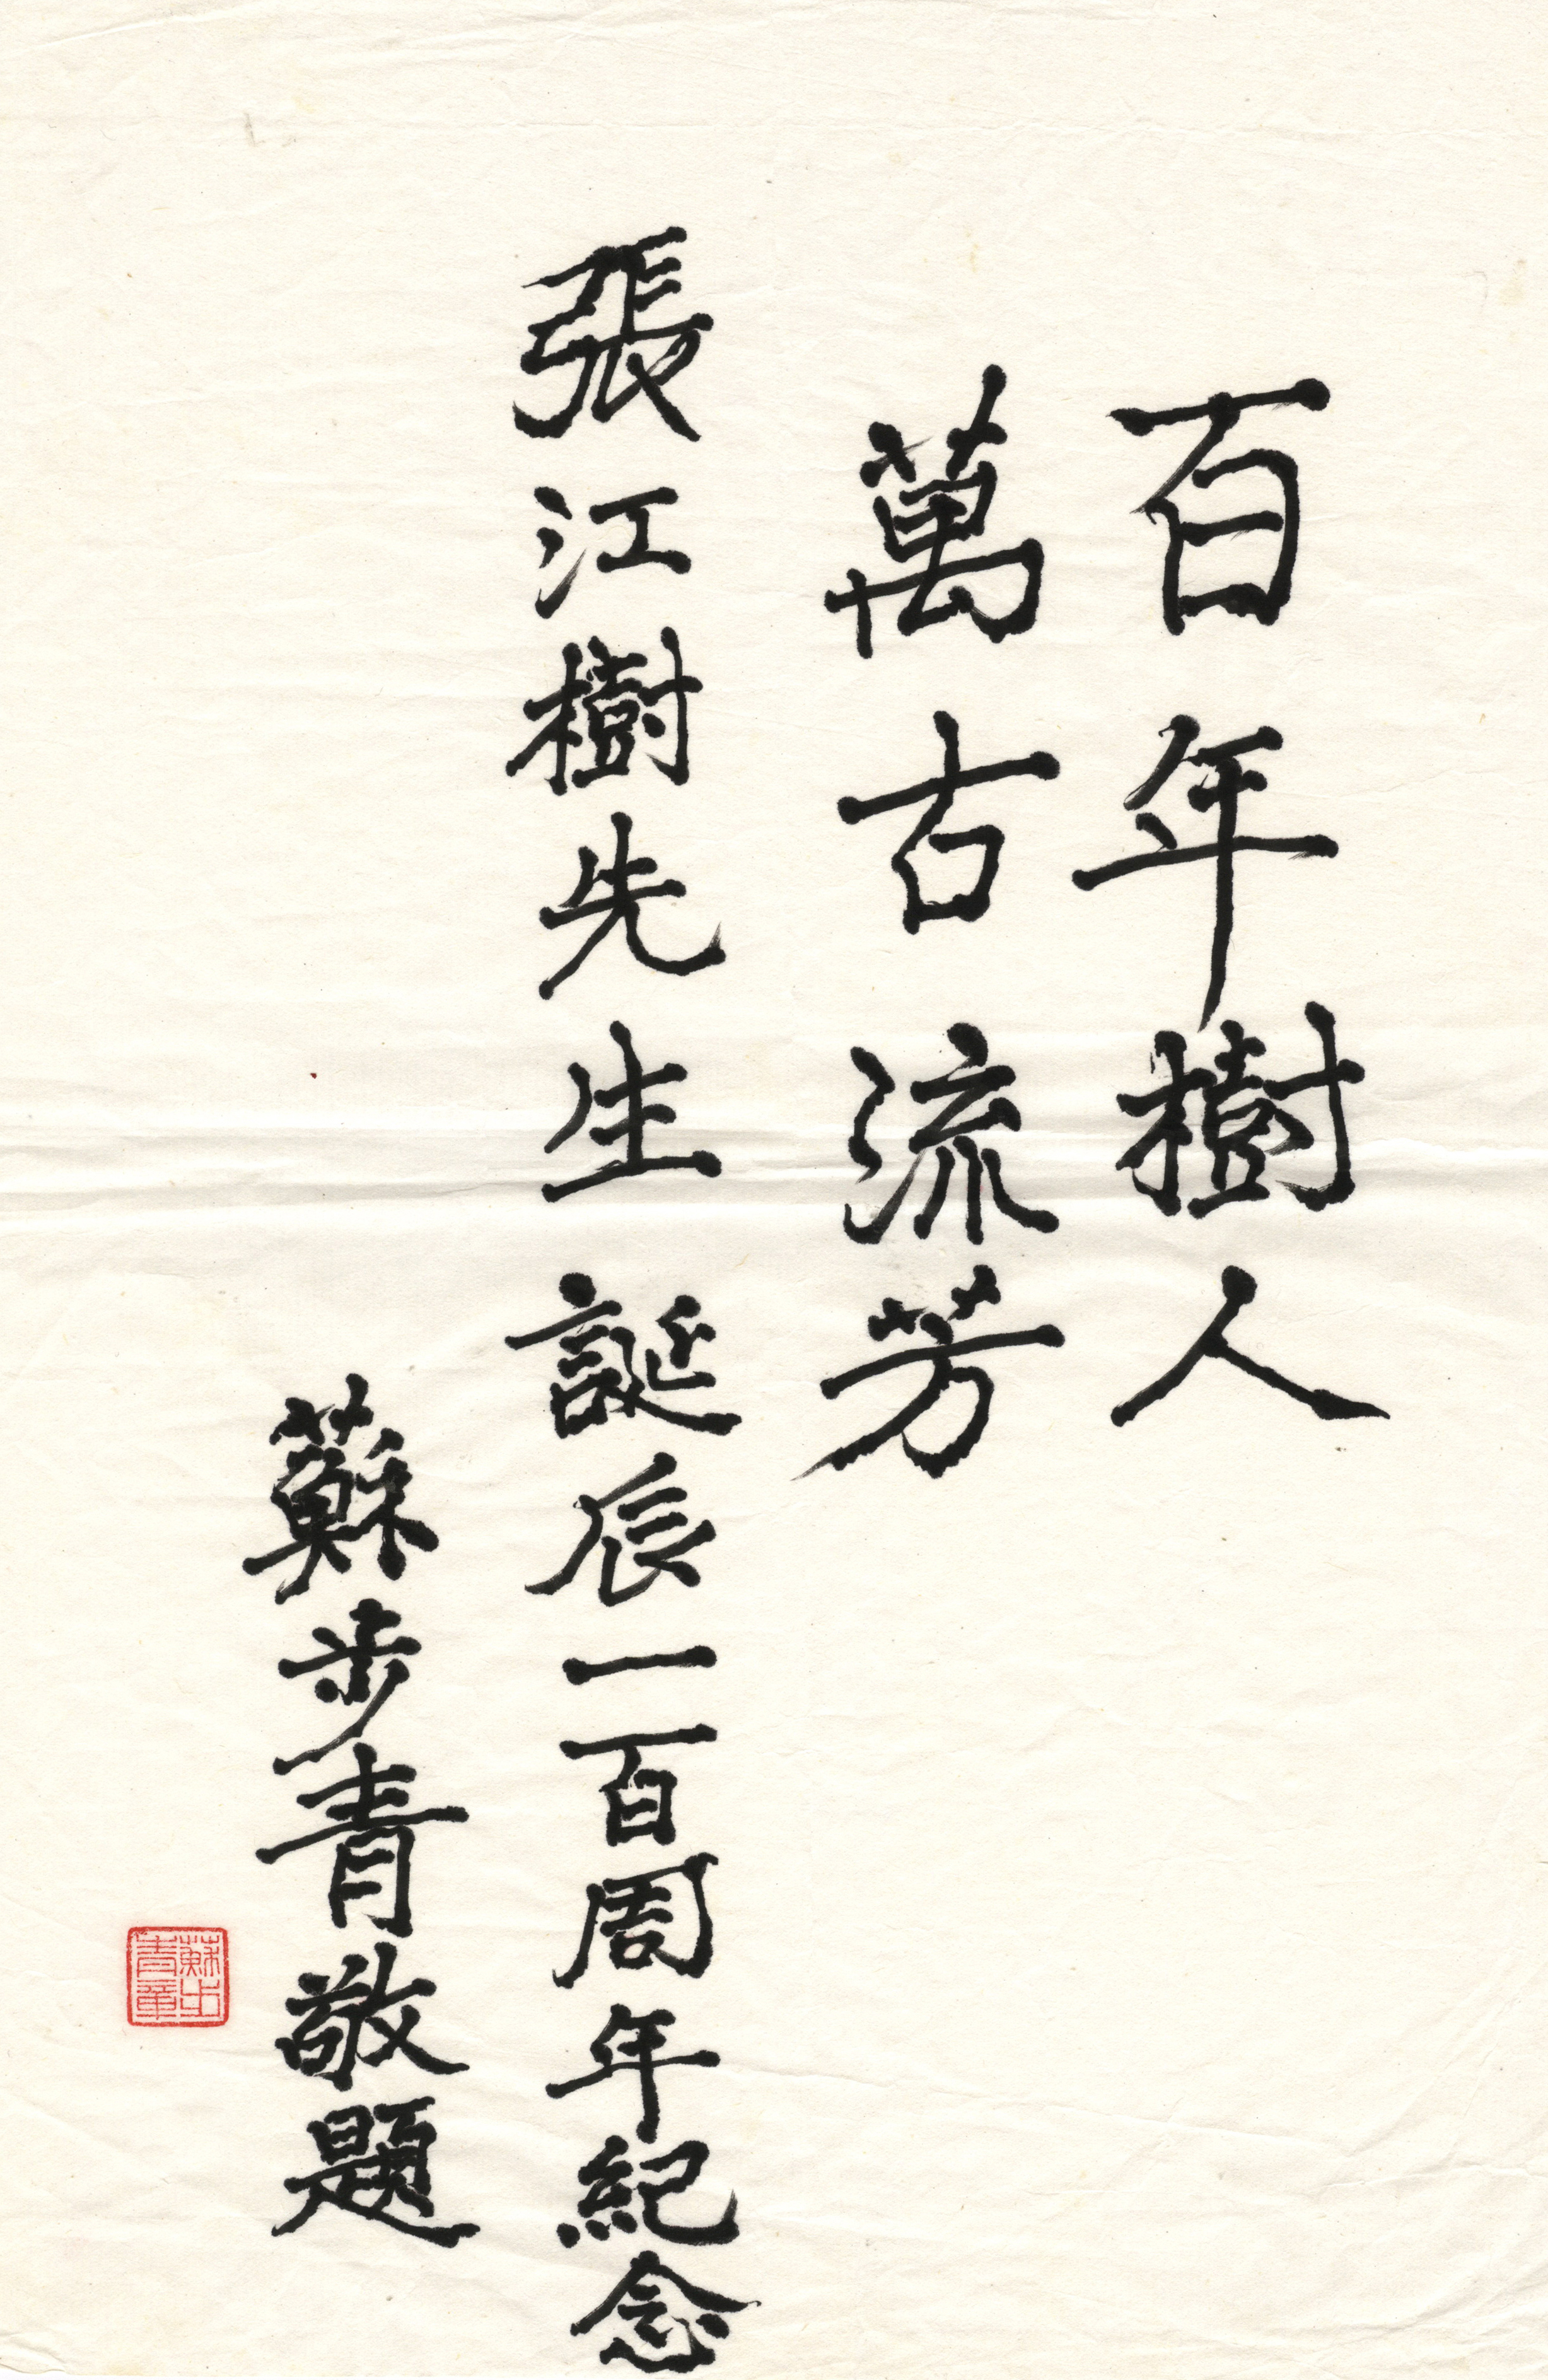 百年樹人
萬古流芳
張江樹先生誕辰一百周年紀念
蘇步青敬題
蘇步青章